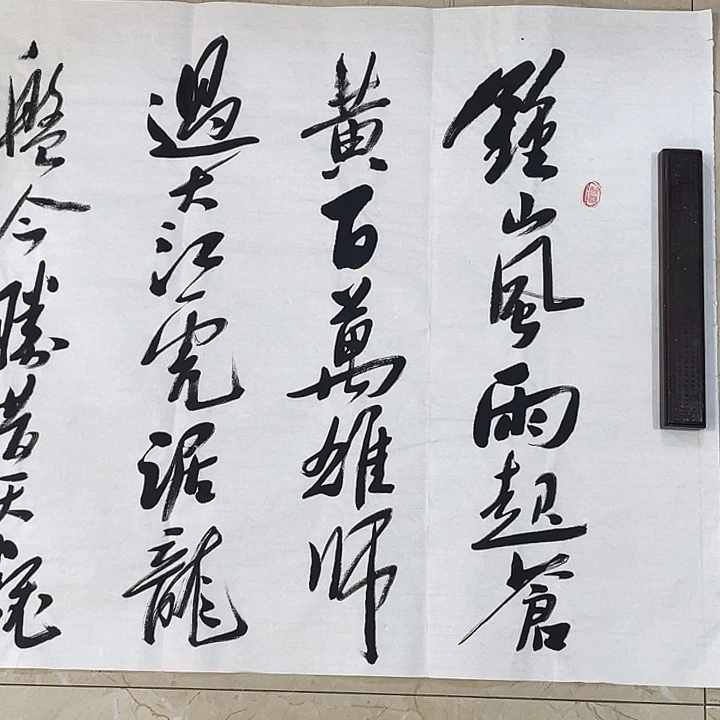 鍾山風雨起蒼
黃百萬雄师
過大江虎踞龍
盤今勝昔天翻